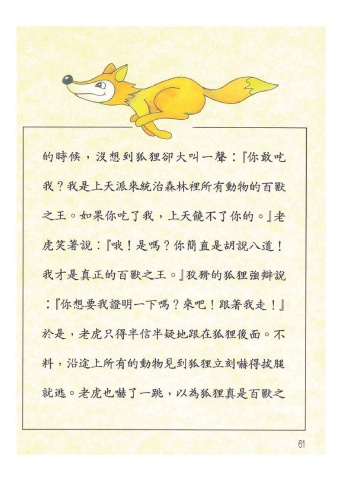 的時候，沒想到狐狸卻大叫一聲：『你敢吃
我？我是上天派來統治森林裡所有動物的百獸
之王。如果你吃了我，上天饒不了你的。』老
虎笑著說：『哦！是嗎？你簡直是胡說八道！
我才是真正的百獸之王。』狡猾的狐狸強辯說
：『你想要我證明一下嗎？來吧！跟著我走！』
於是，老虎只得半信半疑地跟在狐狸後面。不
料，沿途上所有的動物見到狐狸立刻嚇得拔腿
就逃。老虎也嚇了一跳，以為狐狸真是百獸之
61